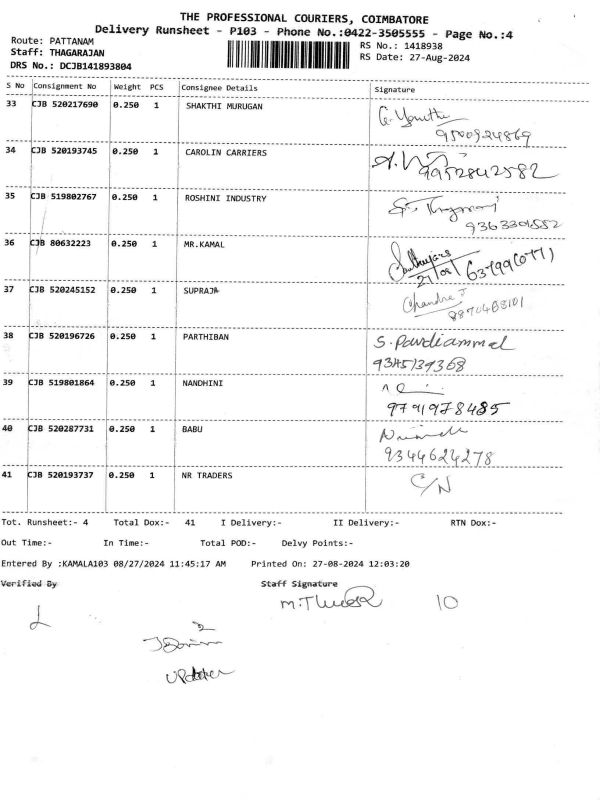 THE PROFESSIONAL COURIERS, COIMBATORE
Delivery Runsheet - P103 - Phone No.:0422-3505555 - Page No.:4
Route: PATTANAM
RS No.: 1418938
Staff: THAGARAJAN
RS Date: 27-Aug-2024
DRS No.: DCJB141893804
S No Consignment No Weight PCS Consignee Details Signature
33 CJB 520217690 0.250 1 SHAKTHI MURUGAN
9500924869
34 CJB 520193745 0.250 1 CAROLIN CARRIERS
9952842582
35 CJB 519802767 0.250 1 ROSHINI INDUSTRY
9363301552
36 CJB 80632223 0.250 1 MR.KAMAL
27/08/
37 CJB 520245152 0.250 1 SUPRAJA
Chandra J
38 CJB 520196726 0.250 1 PARTHIBAN S. Pandiammal
9345139368
39 CJB 519801864 0.250 1 NANDHINI
9791978485
40 CJB 520287731 0.250 1 BABU
9344624278
41 CJB 520193737 0.250 1 NR TRADERS C/N
Tot. Runsheet:- 4 Total Dox:- 41 I Delivery:- II Delivery:- RTN Dox:-
Out Time:- In Time:- Total POD:- Delvy Points:-
Entered By :KAMALA103 08/27/2024 11:45:17 AM Printed On: 27-08-2024 12:03:20
Verified By Staff Signature
10